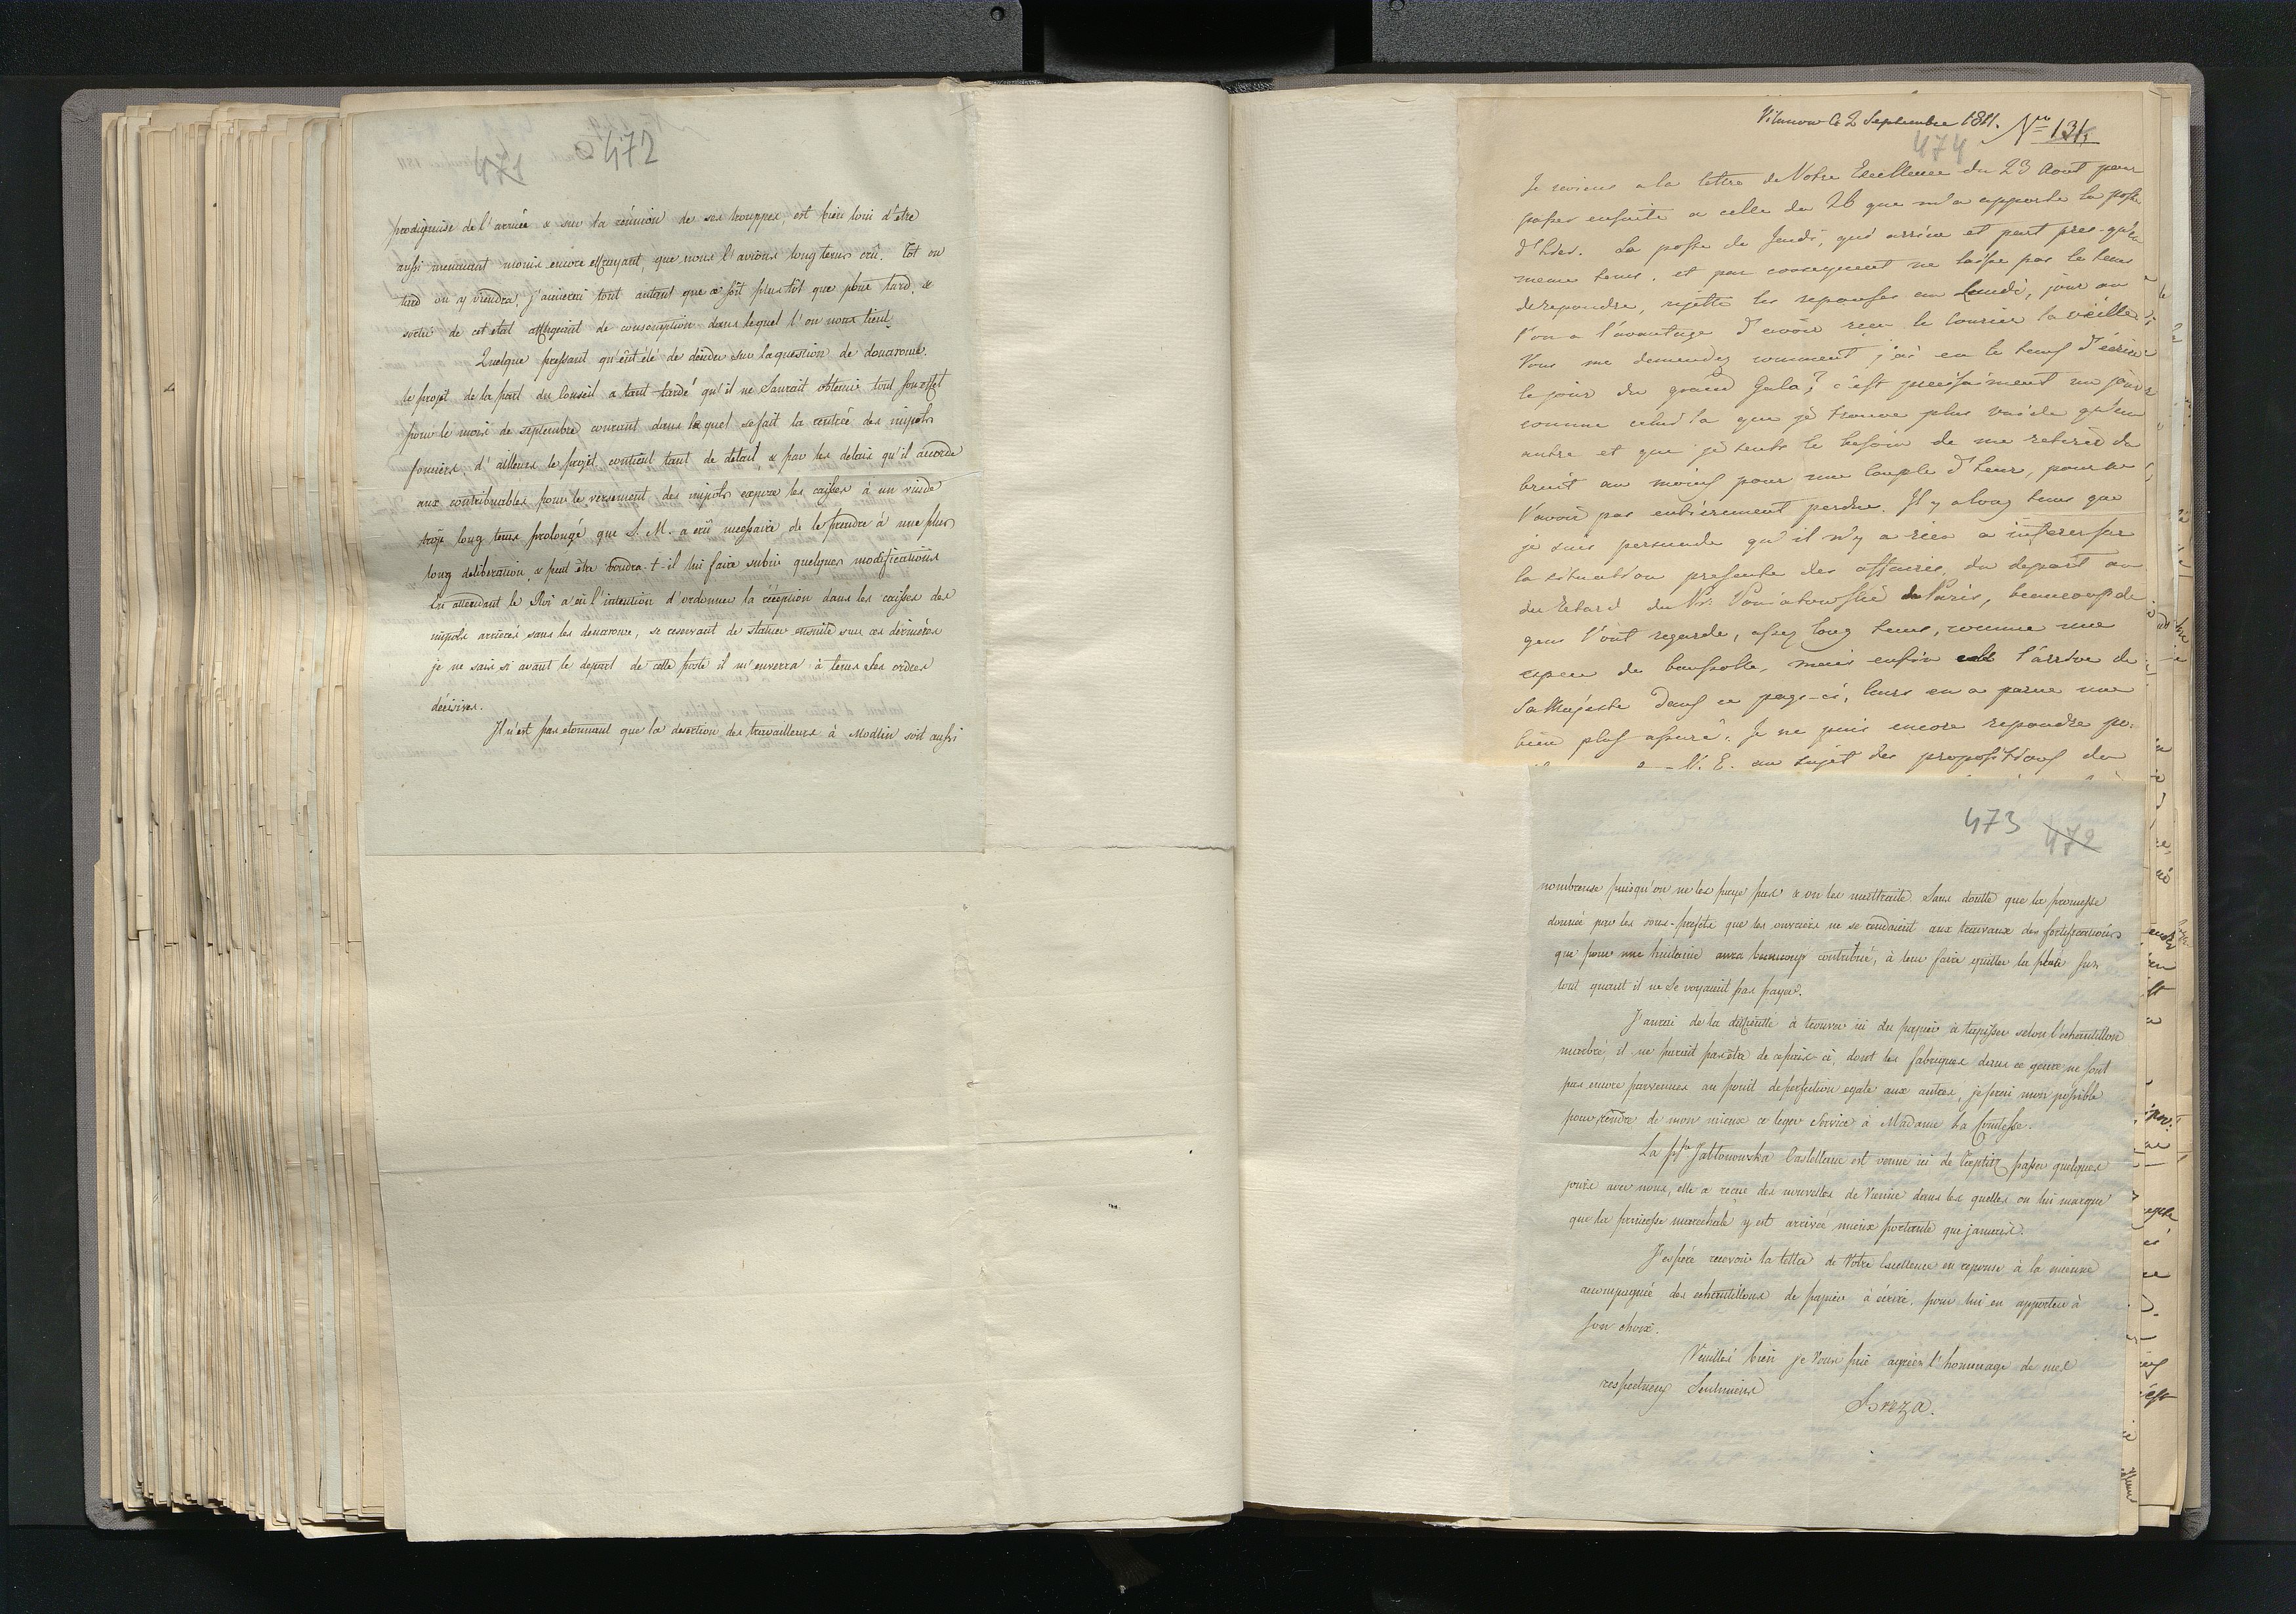 472
471
prodigieuse de l'armée & sur la réunion de ses trouppes, est bien loin d'etre
aussi menaçant moins encore effrayant, que nous l'avions long tems crû. Tot ou
tard on y viendra, j'aimerai tout autant que ce soit plus tôt que plus tard, &
sortir de cet état affligeant de consomption dans lequel l'on nous tient.
Quelque pressant qu'eût été de decider sur la question de douarowe.
le projet de la part du Conseil a tant tardé qu'il ne Saurait obtenir tout son effet
pour le mois de septembre courant dans lequel se fait la rentrée des impots
fonciers, d'ailleurs le projet contient tant de detail & par les delais qu'il accorde
aux contribuables pour le versement des impots expose les caisses à un vuide
trop long tems prolongé que S. M. a crû necessaire de le prendre à une plus
long deliberation, & peut être voudra-t-il lui faire subir quelques modifications
En attendant le Roi a eu l'intention d'ordonner la réception dans les caisses des
impots arrierés sans les douarowe, se reservant de statuer ensuite sur ces dernières
je ne sais si avant le depart de cette poste il m'enverra à tems ses ordres
décisives.
Il n'est pas etonnant que la desertion des travailleurs à Modlin soit aussi
Vilanow le 2 Septembre 1811. Nro 131
474
Je reviens a la lettre de Votre Excellence du 23 Aout pour
passer ensuite a celle du 26 que m'a apporté la poste
d'hier. La poste de Jeudi, qui arrive et part presqu'en
meme tems, et par consequent ne laisse pas le tems
de repondre, rejette les reponses au Lundi, jour ou
l'on a l'avantage d'avoir reçu le Courier la veille
Vous me demandez comment j'ai eu le tems d'écrire
le jour du grand Gala? c'est precisement un jour
comme celui la que je trouve plus vuide qu'un
autre et que je sents le besoin de me retirer du
bruit au moins pour une couple d'heur, pour ne
l'avoir pas entièrement perdue. Il y a long tems que
je suis persuadé qu'il n'y a rien a inferer sur
la situation presente des affaires, du depart ou
du retard du Pr. Poniatowski de Paris, beaucoup de
gens l'ont regardé, assez long tems, comme une
espece de boussolle, mais enfin l'arrivé de
Sa Majesté dans ce pays-ci, leurs en a parue une
bien plus assuré. Je ne puis encore repondre po-
V. E. au sujet des propositions du
473
472
nombreuse puisqu'on ne les paye pas & on les maltraite. Sans doutte que la promesse
donnée par les sous-prefets que les ouvriers ne se rendaient aux travaux des fortifications
que pour une huitaine aura beaucoup contribué, à leur faire quitter la place sur
tout quant il ne se voyaient pas payer.
J'aurai de la difficulté à trouver ici du papier à tapisser selon l'echantillon
marbré, il ne parait pas être de ce païs-ci, dont les fabriques dans ce genre, ne sont
pas encore parvenues au point de perfection egale aux autres, je ferai mon possible
pour rendre de mon mieux ce leger Service à Madame la Comtesse.
La Psse Jabłonowska Castellane est venue ici de Töeplitz passer quelques
jours avec nous, elle a reçue des nouvelles de Vienne dans les quelles on lui marque
que la princesse marechale y est arrivée mieux portante que jamais.
J'espère recevoir la lettre de Votre Excellence en reponse à la mienne
accompagnée des echantillons de papier à écrire, pour lui en apporter à
son choix.
Veuillés bien je Vous prie agréer l'hommage de mes
respectueux Sentimens
Breza.